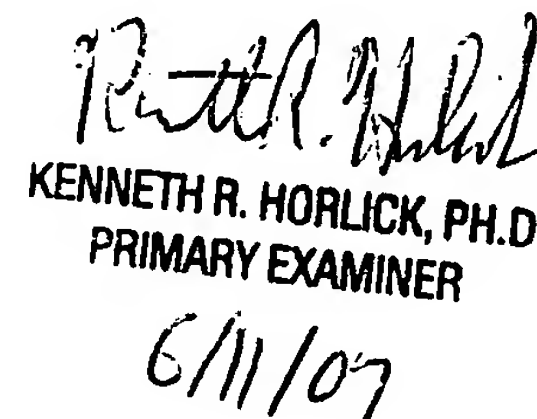 Kenneth R. Horlick
KENNETH R. HORLICK, PH.D
PRIMARY EXAMINER
6/11/07